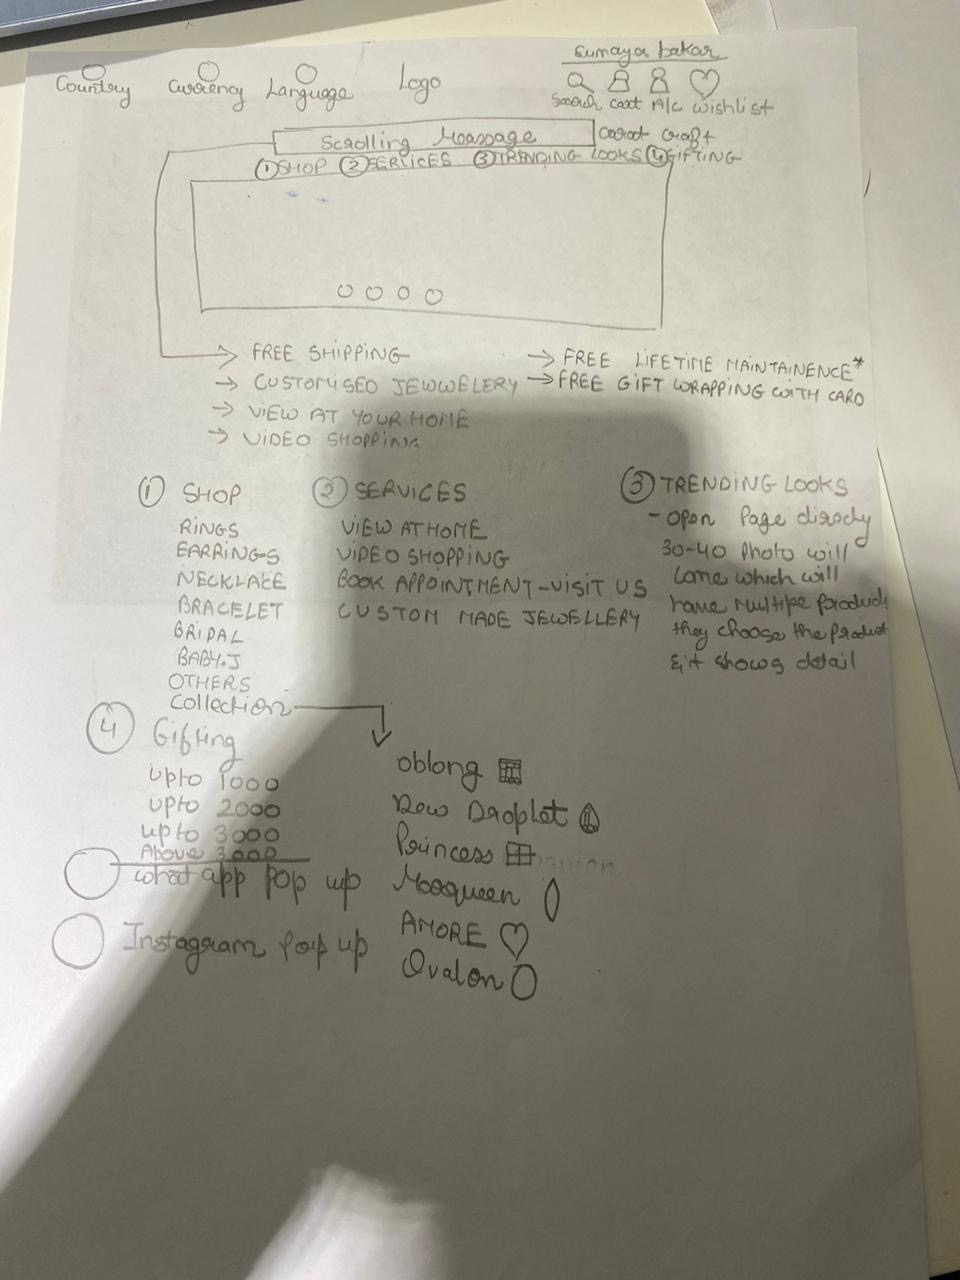 Sumaya bakar
Country Currency Language Logo
Search cart A/c wishlist
Scrolling Moassage
Carat Craft
① SHOP ② SERVICES ③ TRENDING LOOKS ④ GIFTING
→ FREE SHIPPING
→ CUSTOMISED JEWWELERY
→ VIEW AT YOUR HOME
→ VIDEO SHOPPING
→ FREE LIFETIME MAINTAINENCE*
→ FREE GIFT WRAPPING WITH CARD
① SHOP
RINGS
EARRINGS
NECKLACE
BRACELET
BRIDAL
BABY.J
OTHERS
Collection
② SERVICES
VIEW AT HOME
VIDEO SHOPPING
BOOK APPOINTMENT - VISIT US
CUSTOM MADE JEWELLERY
③ TRENDING LOOKS
- open Page dirocly
30-40 Photo will
Come which will
have multipe product
they choose the product
& it shows detail
④ Gifting
upto 1000
upto 2000
upto 3000
Above 3000
oblong
Dew Droplet
Princess
Mosqueen
AMORE
Ovalon
what app pop up
Instagram pop up